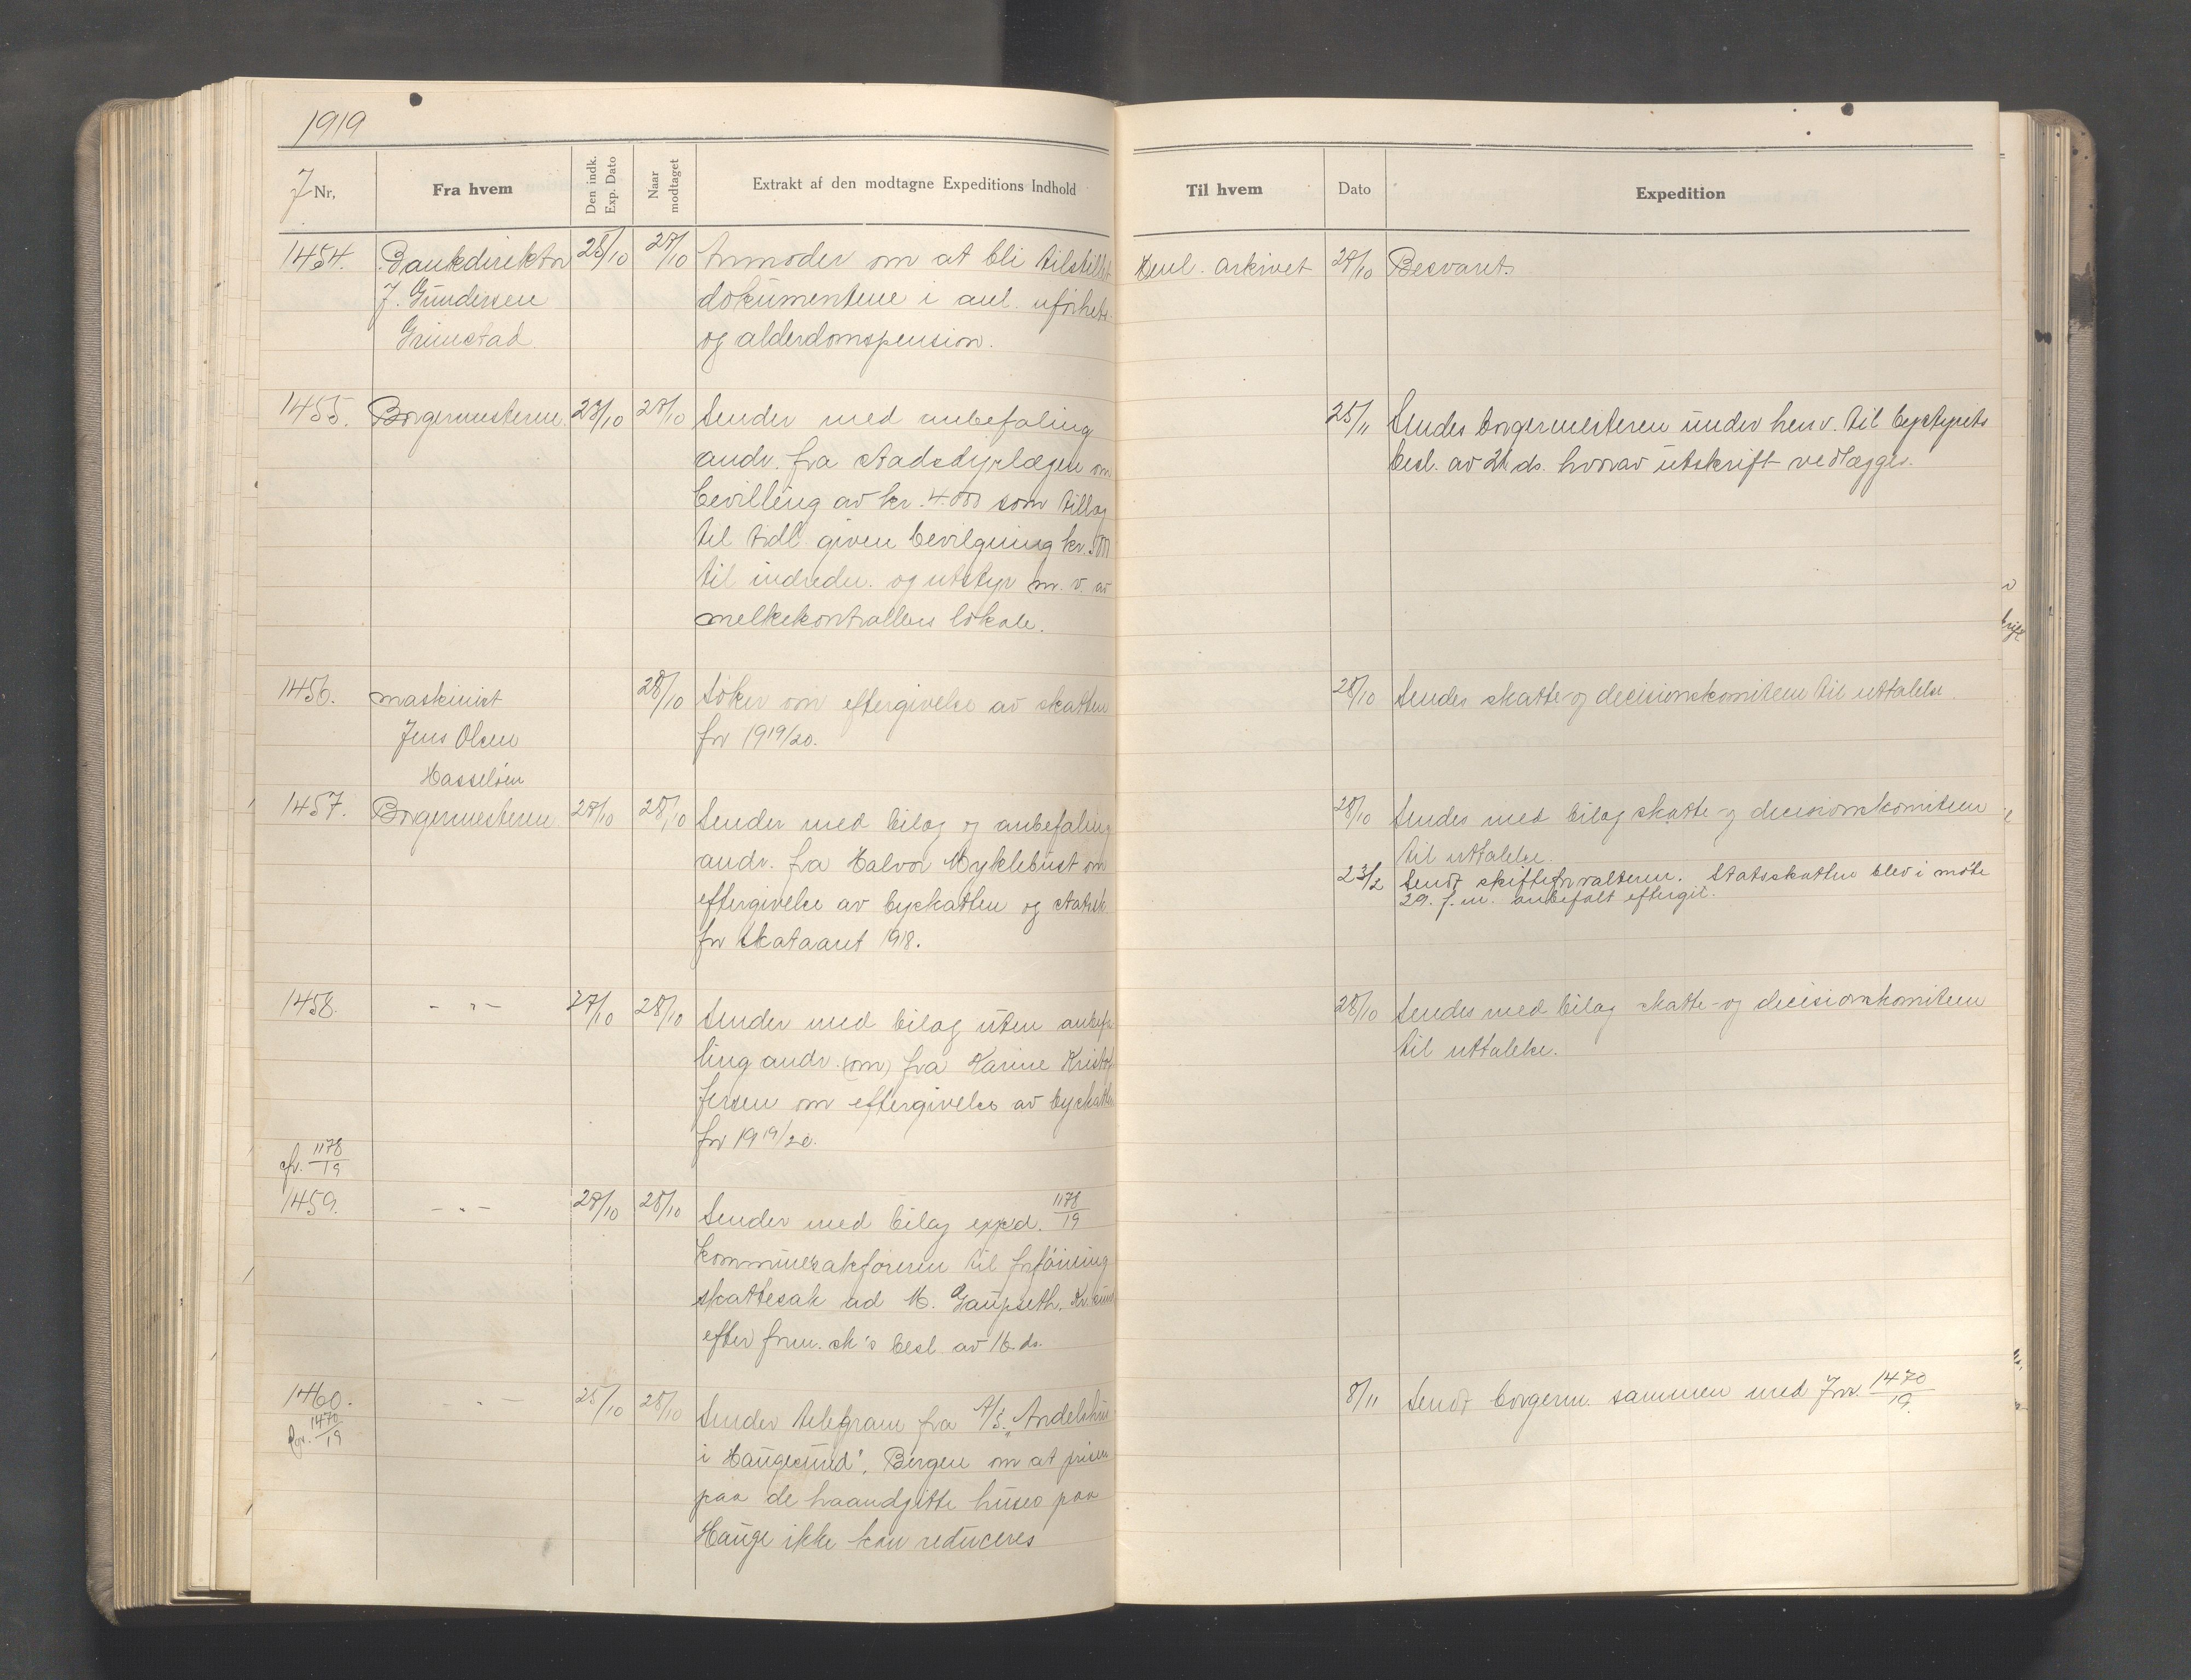 1919
J Nr,
Fra hvem
Den indk. Exp. Dato
Naar modtaget
Extrakt af den modtagne Expeditions Indhold
Til hvem
Dato
Expedition
1454. Bankdirektør 25/10 27/10 Anmoder om at bli tilstillet
J. Gundersen dokumentene i anl. uførhets-
Grimstad og alderdomspension.
Henl. arkivet 29/10 Besvart.
1455. Borgermesteren 28/10 28/10 Sender med anbefaling
andr. fra stadsdyrlægen om
bevilling av kr. 4.000 som tillæg
til tidl given bevilgning kr.
til indredn. og utstyr m. v. av
melkekontrollens lokale.
25/11 Sendes borgermesteren under henv. til bystyrets
besl. av 21 ds. hvorav utskrift vedlægges.
1456. maskinist 28/10 Søker om eftergivelse av skatten
Jens Olsen for 1919/20.
Hasseløen
28/10 Sendes skatte- og decisionskomiteen til uttalelse.
1457. Borgermesteren 28/10 28/10 Sender med bilag og anbefaling
andr. fra Halvor Myklebust om
eftergivelse av byskatten og statssk.
for skataaret 1918.
28/10 Sendes med bilag skatte- og decisionskomiteen
til uttalelse.
23/2 Sendt skifteforvalteren. Statsskatten blev i møte
29. f. m. anbefalt eftergit.
1458. - " - 27/10 28/10 Sender med bilag uten anbefa-
ling andr. (om) fra Karine Kristof-
fersen om eftergivelse av byskatten
for 1919/20.
28/10 Sendes med bilag skatte- og decisionskomiteen
til uttalelse.
cfr. 1178/19
1459. - " - 28/10 28/10 Sender med bilag exped. 1178/19
kommunesakføreren til forføining
skattesak ad M. Gaupseth, Kr.sund
efter form. sk's besl av 16 ds.
1460. - " - 25/10 28/10 Sender telegram fra A/S. "Andelshus
cfr. 1470/19
i Haugesund", Bergen om at prisen
paa de haandgitte huser paa
Hauge ikke kan reduceres
8/11 Sendt borgerm. sammen med Jnr. 1470/19.